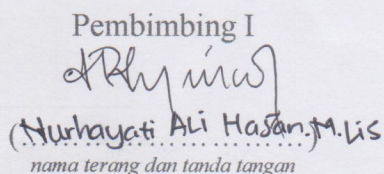 Pembimbing I
(Nurhayati Ali Hasan, M.Lis)
nama terang dan tanda tangan